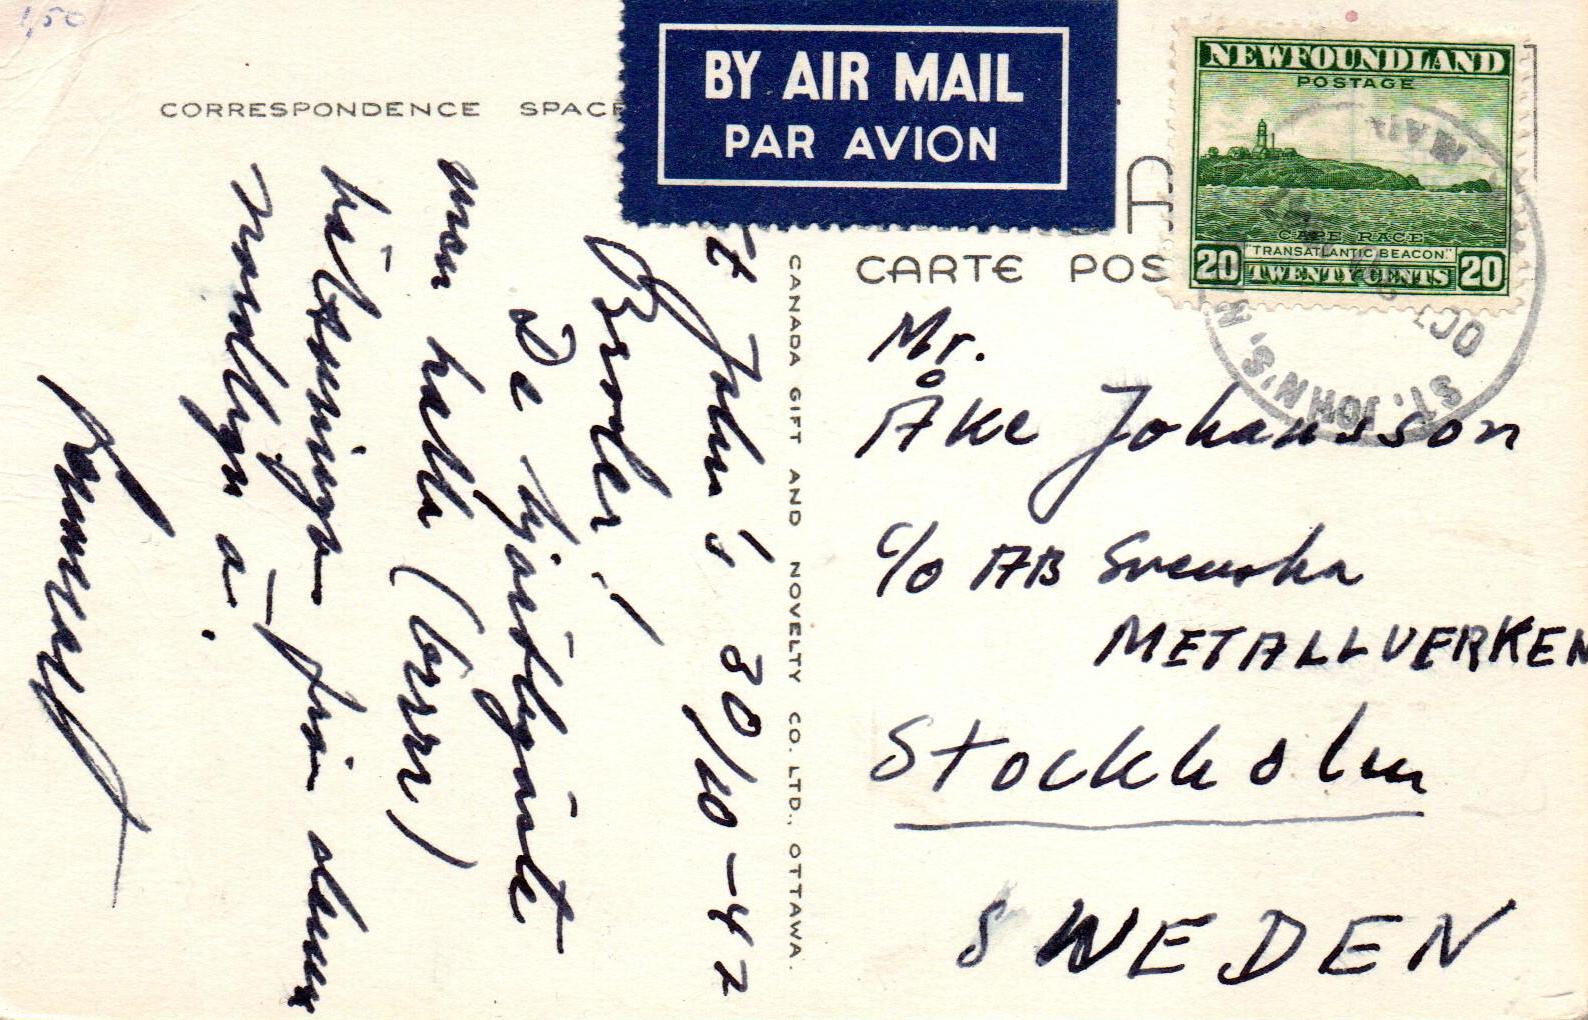 1,50
CORRESPONDENCE SPACE
BY AIR MAIL
PAR AVION
CARTE POS
NEWFOUNDLAND
POSTAGE
CAPE RACE
"TRANSATLANTIC BEACON"
20 TWENTY CENTS 20
ST. JOHN'S, N
OCT
MAIL
CANADA GIFT AND NOVELTY CO. LTD., OTTAWA.
St John's 30/10-47
Broder!
De hjärtligaste
man halla (brrr)
hälsningar från denna
nordliga ö.
Mr.
Åke Johansson
c/o AB Svenska
METALLVERKEN
Stockholm
SWEDEN